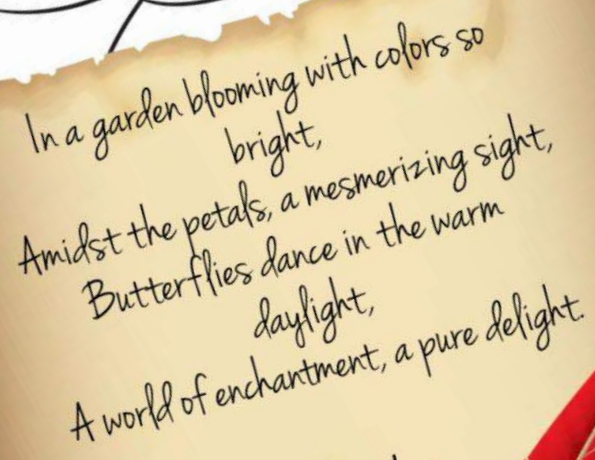 In a garden blooming with colors so
bright,
Amidst the petals, a mesmerizing sight,
Butterflies dance in the warm
daylight,
A world of enchantment, a pure delight.